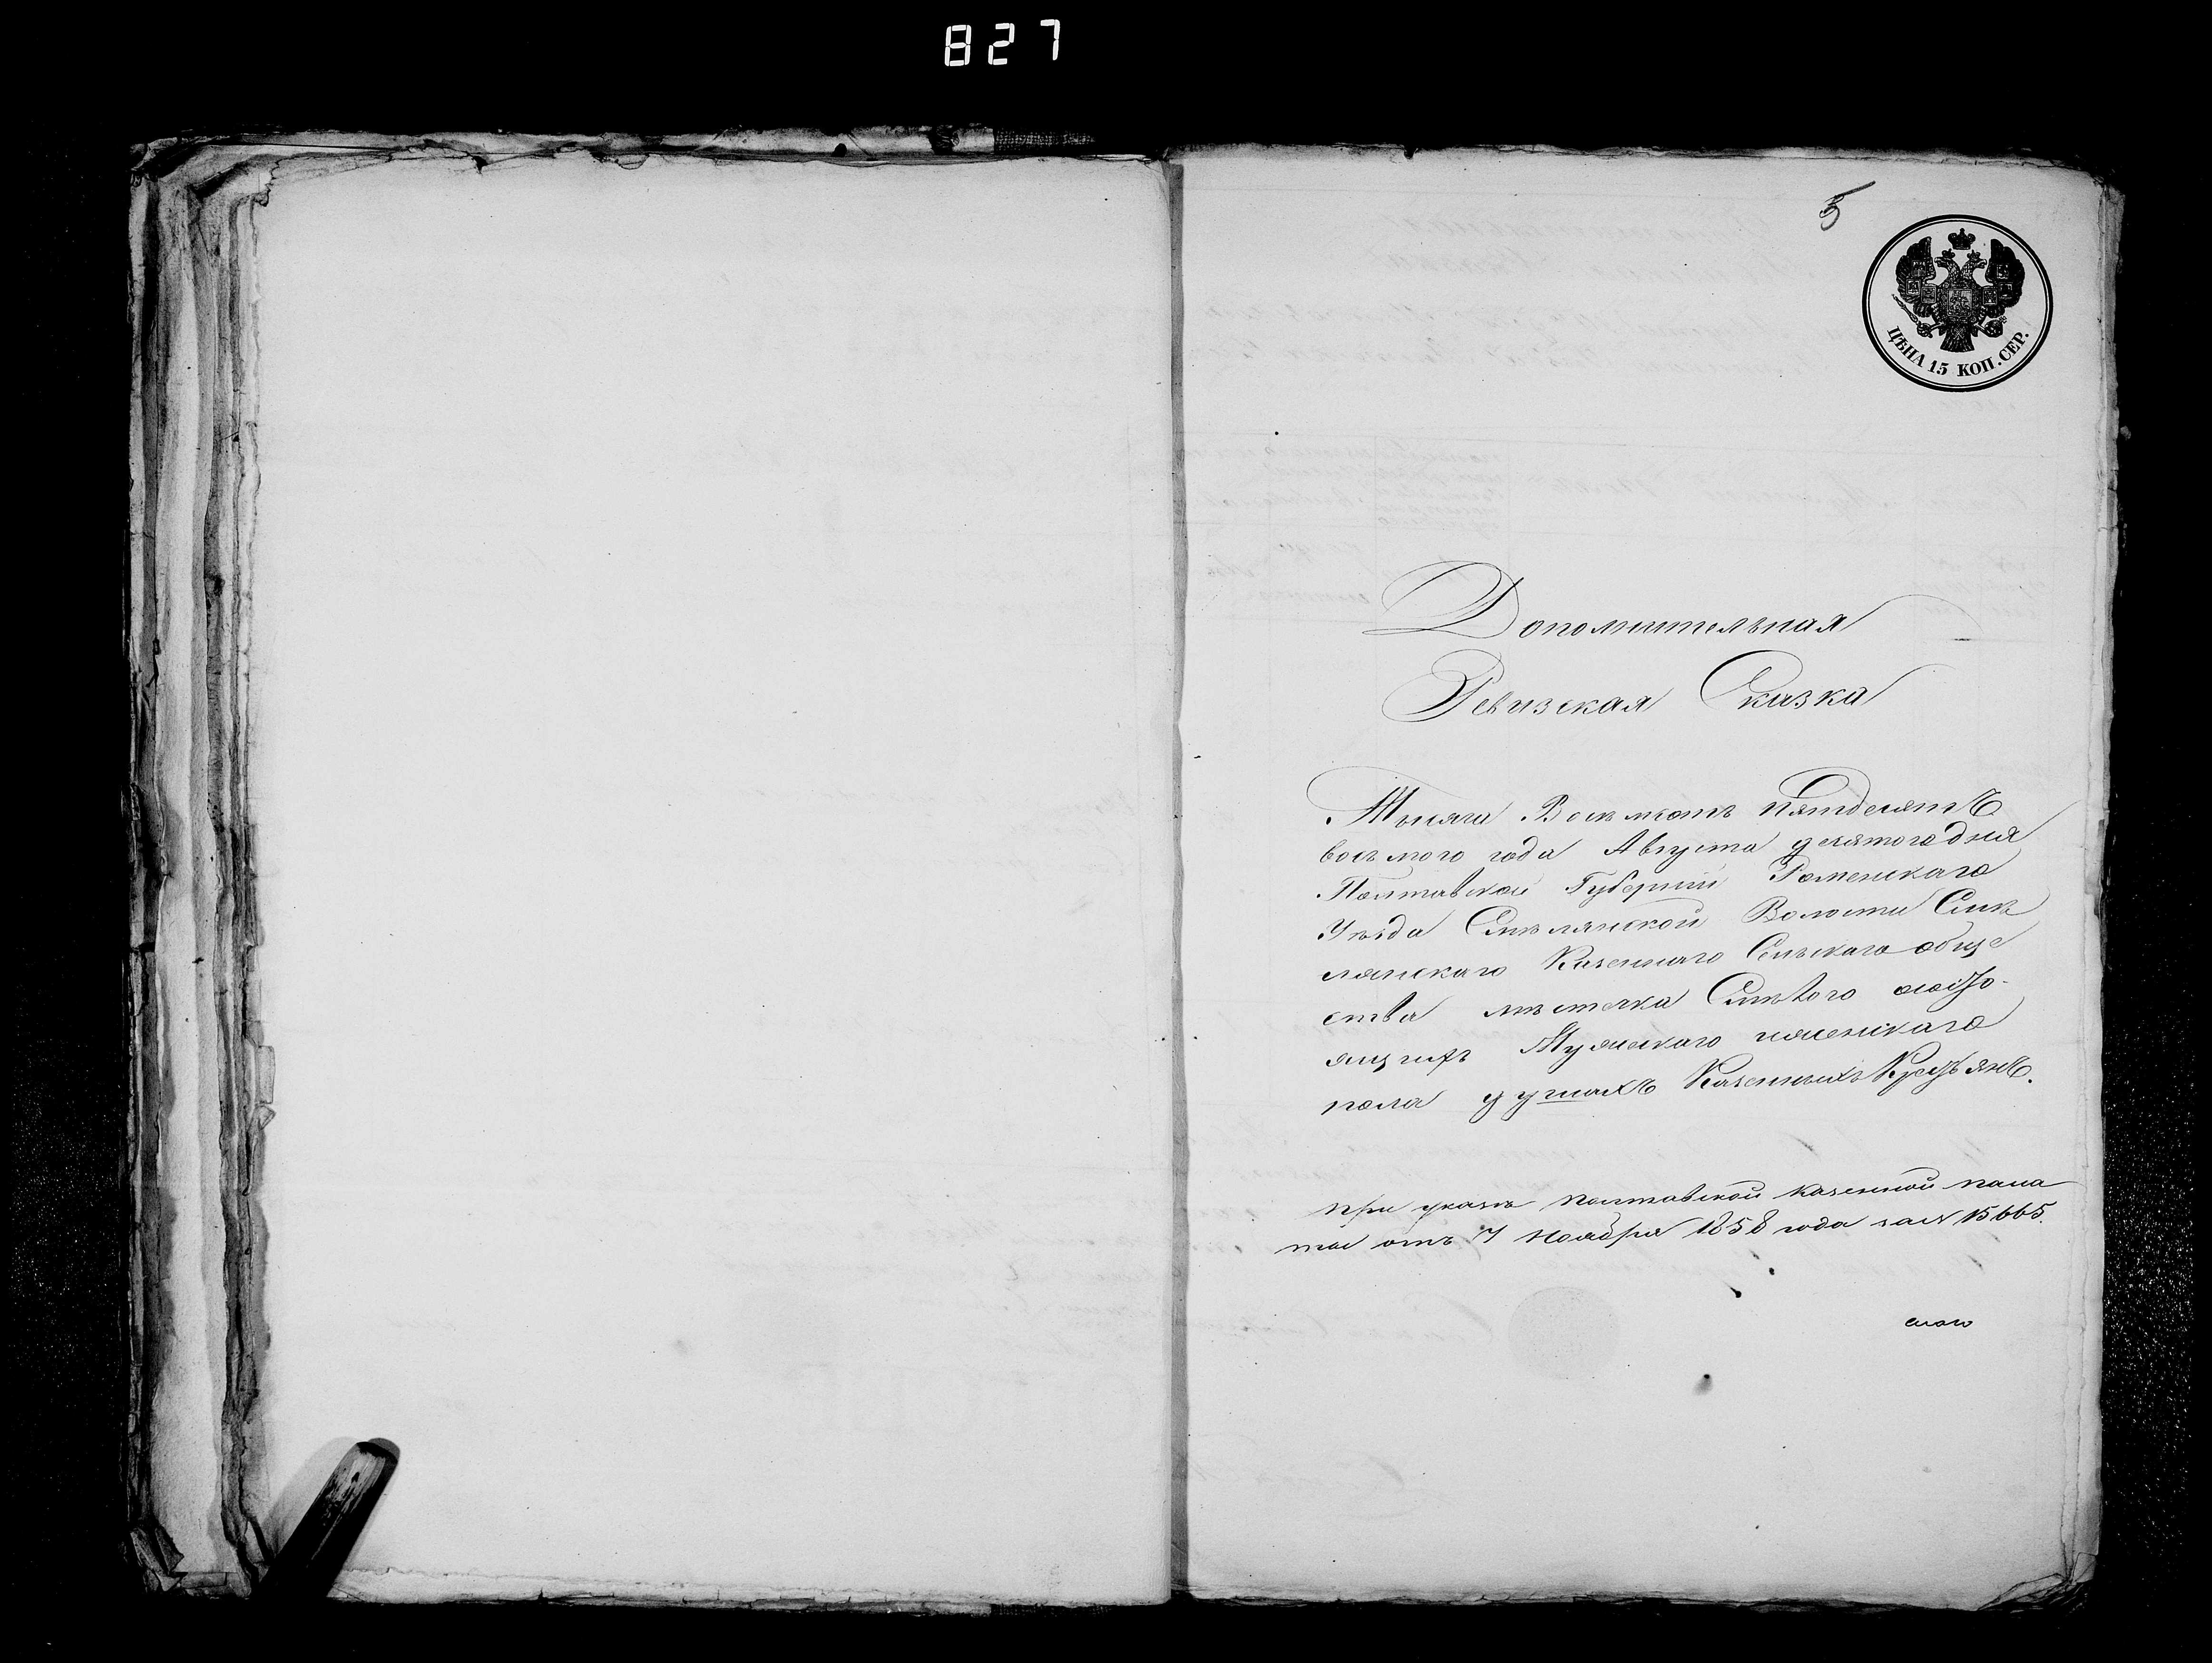 827
5
ЦѢНА 15 КОП. СЕР.
Дополнительная
Ревизская Сказка
Тысяча Восемсотъ Пятдесятъ
восьмого года Августа десятого дня
Полтавской Губернии Роменскаго
Уѣзда Смѣлянской Волости Смѣ
лянскаго Казеннаго Сельскаго обще
ства мѣстечка Смѣлого состо-
ящихъ Мужескаго и женскаго
пола душахъ Казенныхъ Крестьянъ.
при указѣ Полтавской казенной пала
ты отъ 7 Ноября 1858 года за № 15665.